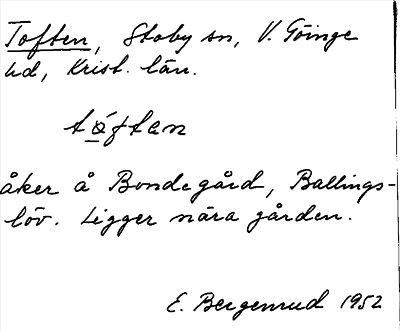 Toften, Stoby sn, V. Göinge
hd, Krist. län.
tåften
åker å Bondegård, Ballings-
löv. Ligger nära gården.
E. Bergenrud 1952